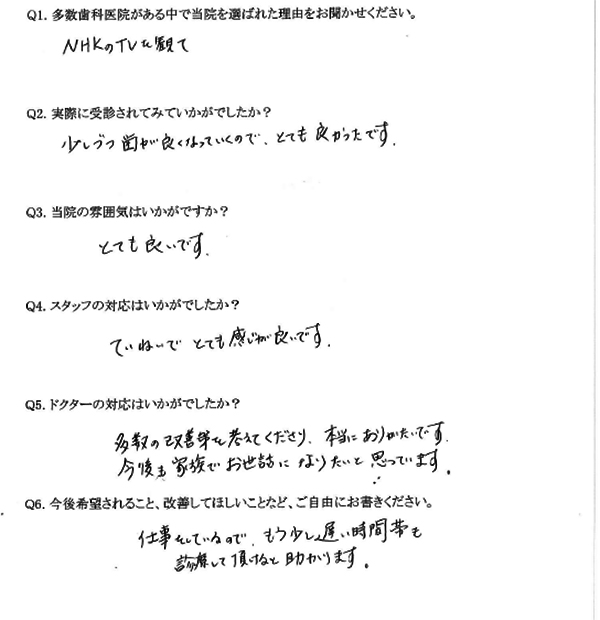 Q1. 多数歯科医院がある中で当院を選ばれた理由をお聞かせください。
NHKのTVを観て
Q2. 実際に受診されてみていかがでしたか?
少しづつ歯が良くなっていくので、とても良かったです.
Q3. 当院の雰囲気はいかがですか?
とても良いです.
Q4. スタッフの対応はいかがでしたか?
ていねいでとても感じが良いです.
Q5. ドクターの対応はいかがでしたか?
多数の改善策を考えてくださり、本当にありがたいです.
今後も家族でお世話になりたいと思っています。
Q6. 今後希望されること、改善してほしいことなど、ご自由にお書きください。
仕事をしているので、もう少し遅い時間帯も
診療して頂けると助かります。